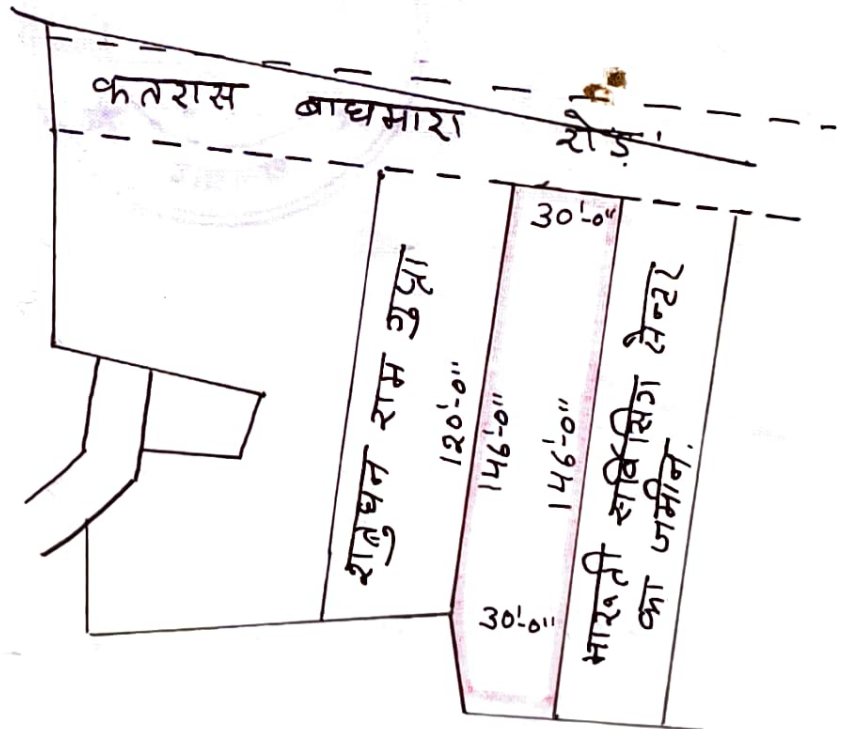 कतरास बाघमारा रोड
30'-0"
शत्रुघन राम गुप्ता
120'-0"
146'-0"
146'-0"
30'-0"
मारुती सर्विसिग सेन्टर
का जमीन.